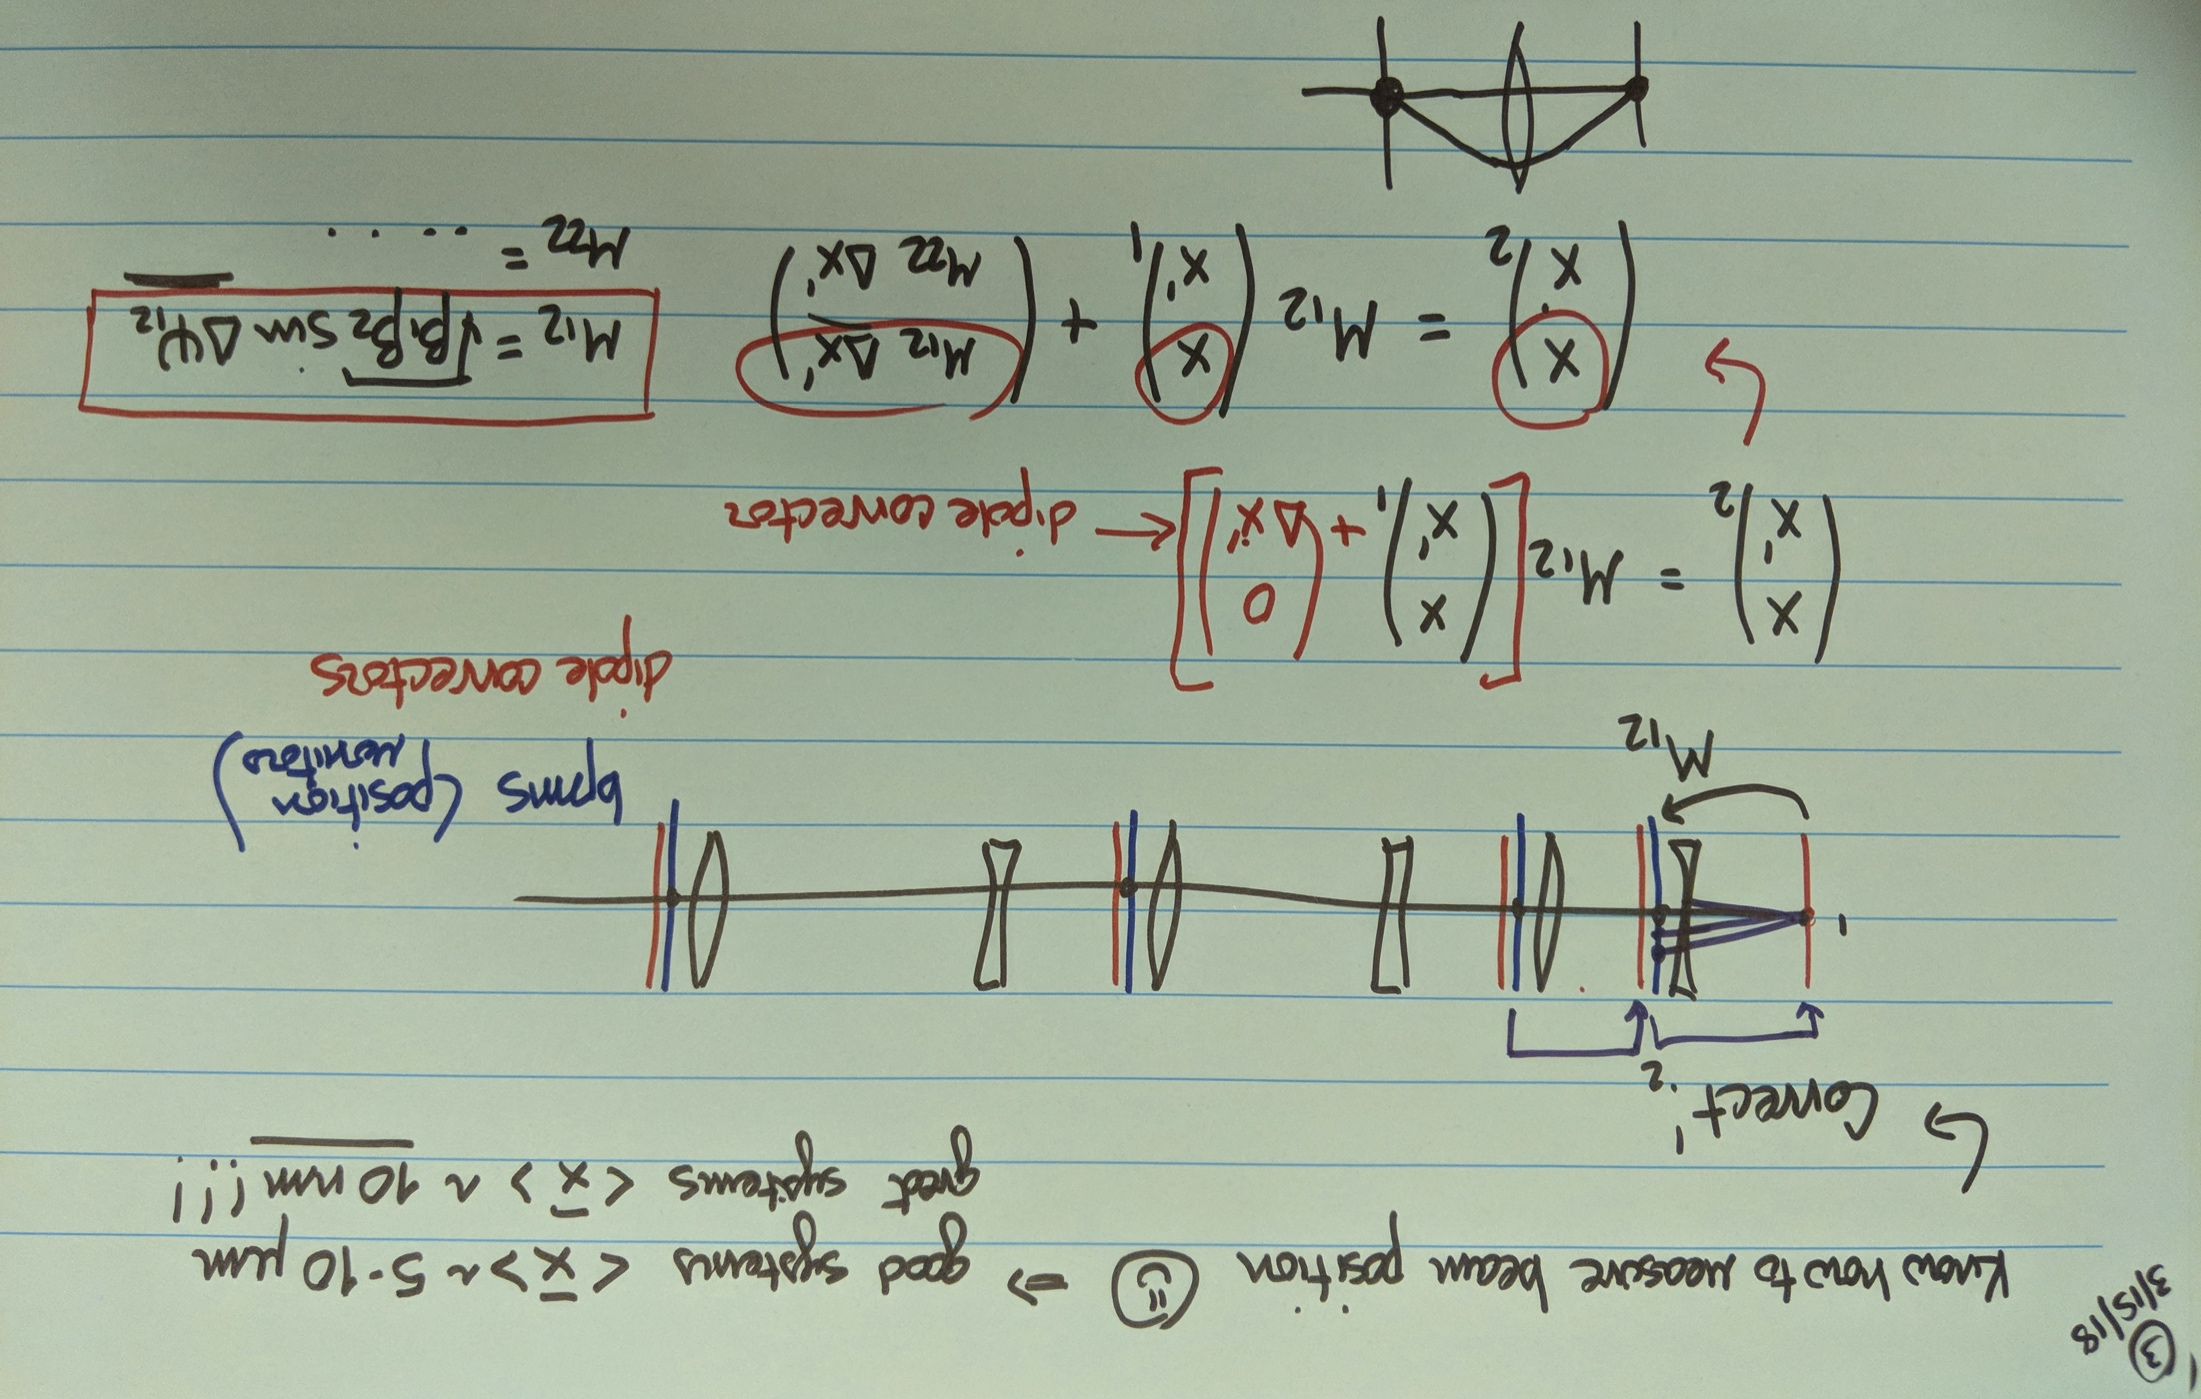 ③ 3/15/18
Know how to measure beam position ⇒ good systems <x̄> ~ 5-10 μm
great systems <x̄> ~ 10 nm !!!
↳ Correct!
2
1
M12
bpms (position monitors)
dipole correctors
(x x')2 = M12 [(x x')1 + (0 Δx')] ← dipole corrector
(x x')2 = M12 (x x')1 + (M12 Δx' M22 Δx')
M12 = √β1β2 sin Δψ12
M22 = .....